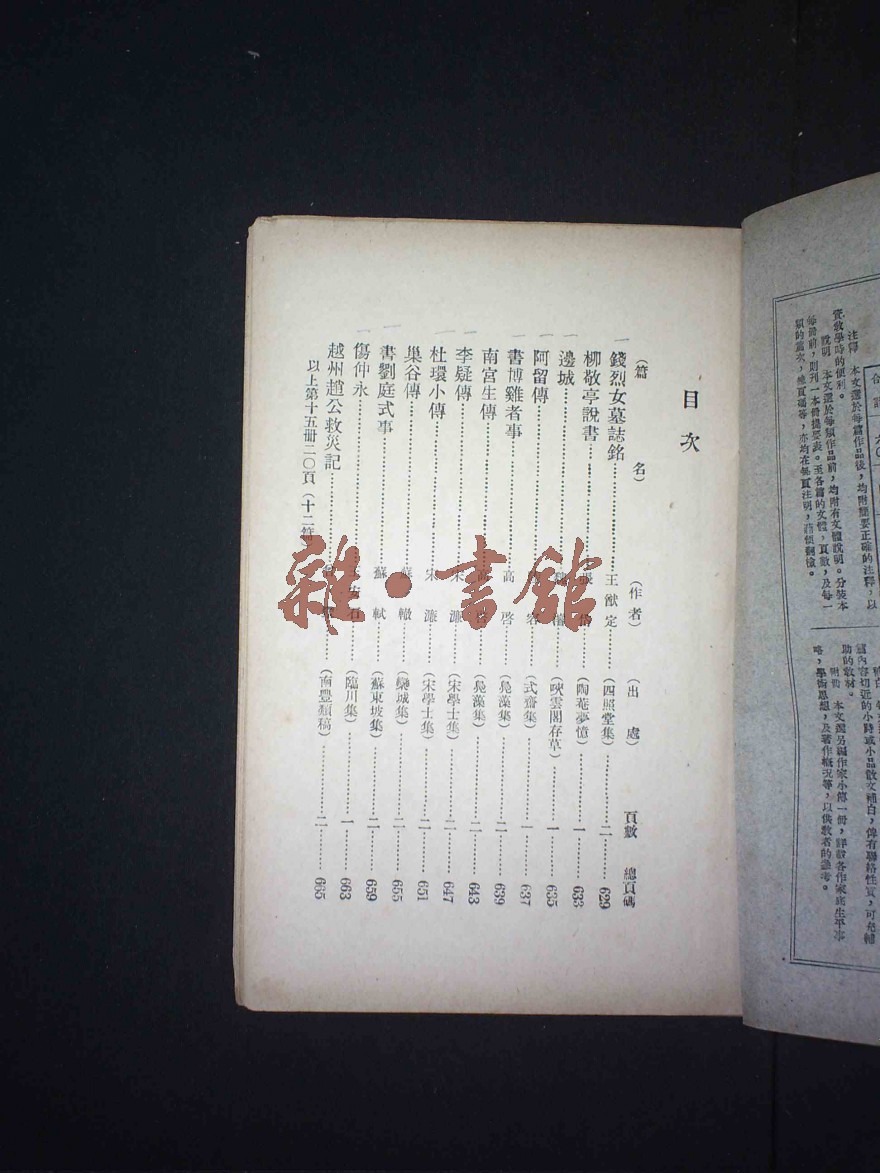 目次
(篇名) (作者) (出處) 頁數 總頁碼
錢烈女墓誌銘 王猷定 (四照堂集) 二 629
柳敬亭說書 張 (陶菴夢憶) 一 633
邊城 (吷雲閣存草) 一 635
阿留傳 容 (式齋集) 一 637
書博雞者事 高啓 (鳧藻集) 二 639
南宮生傳 高 (鳧藻集) 二 643
李疑傳 宋濂 (宋學士集) 二 647
杜環小傳 宋濂 (宋學士集) 二 651
巢谷傳 蘇轍 (欒城集) 二 655
書劉庭式事 蘇軾 (蘇東坡集) 二 659
傷仲永 王安石 (臨川集) 一 663
越州趙公救災記 (南豐類稿) 二 665
以上第十五册二〇頁(十二篇
雜·書館
注釋 本文選於每篇作品後,均附簡要正確的注釋,以
資敎學時的便利。
說明 本文選於每類作品前,均附有文體說明。分裝本
每冊前,則刊一本冊提要表。至各篇的文體,頁數,及每一
類的篇次,總頁碼等,亦均在每頁注明,藉便翻檢。
補白
篇內容切近的小詩或小品散文補白,俾有聯絡性質,可充輔
助的敎材。
附冊 本文選另編作家小傳一冊,詳載各作家底生平事
略,學術思想,及著作概況等,以供敎者的參考。